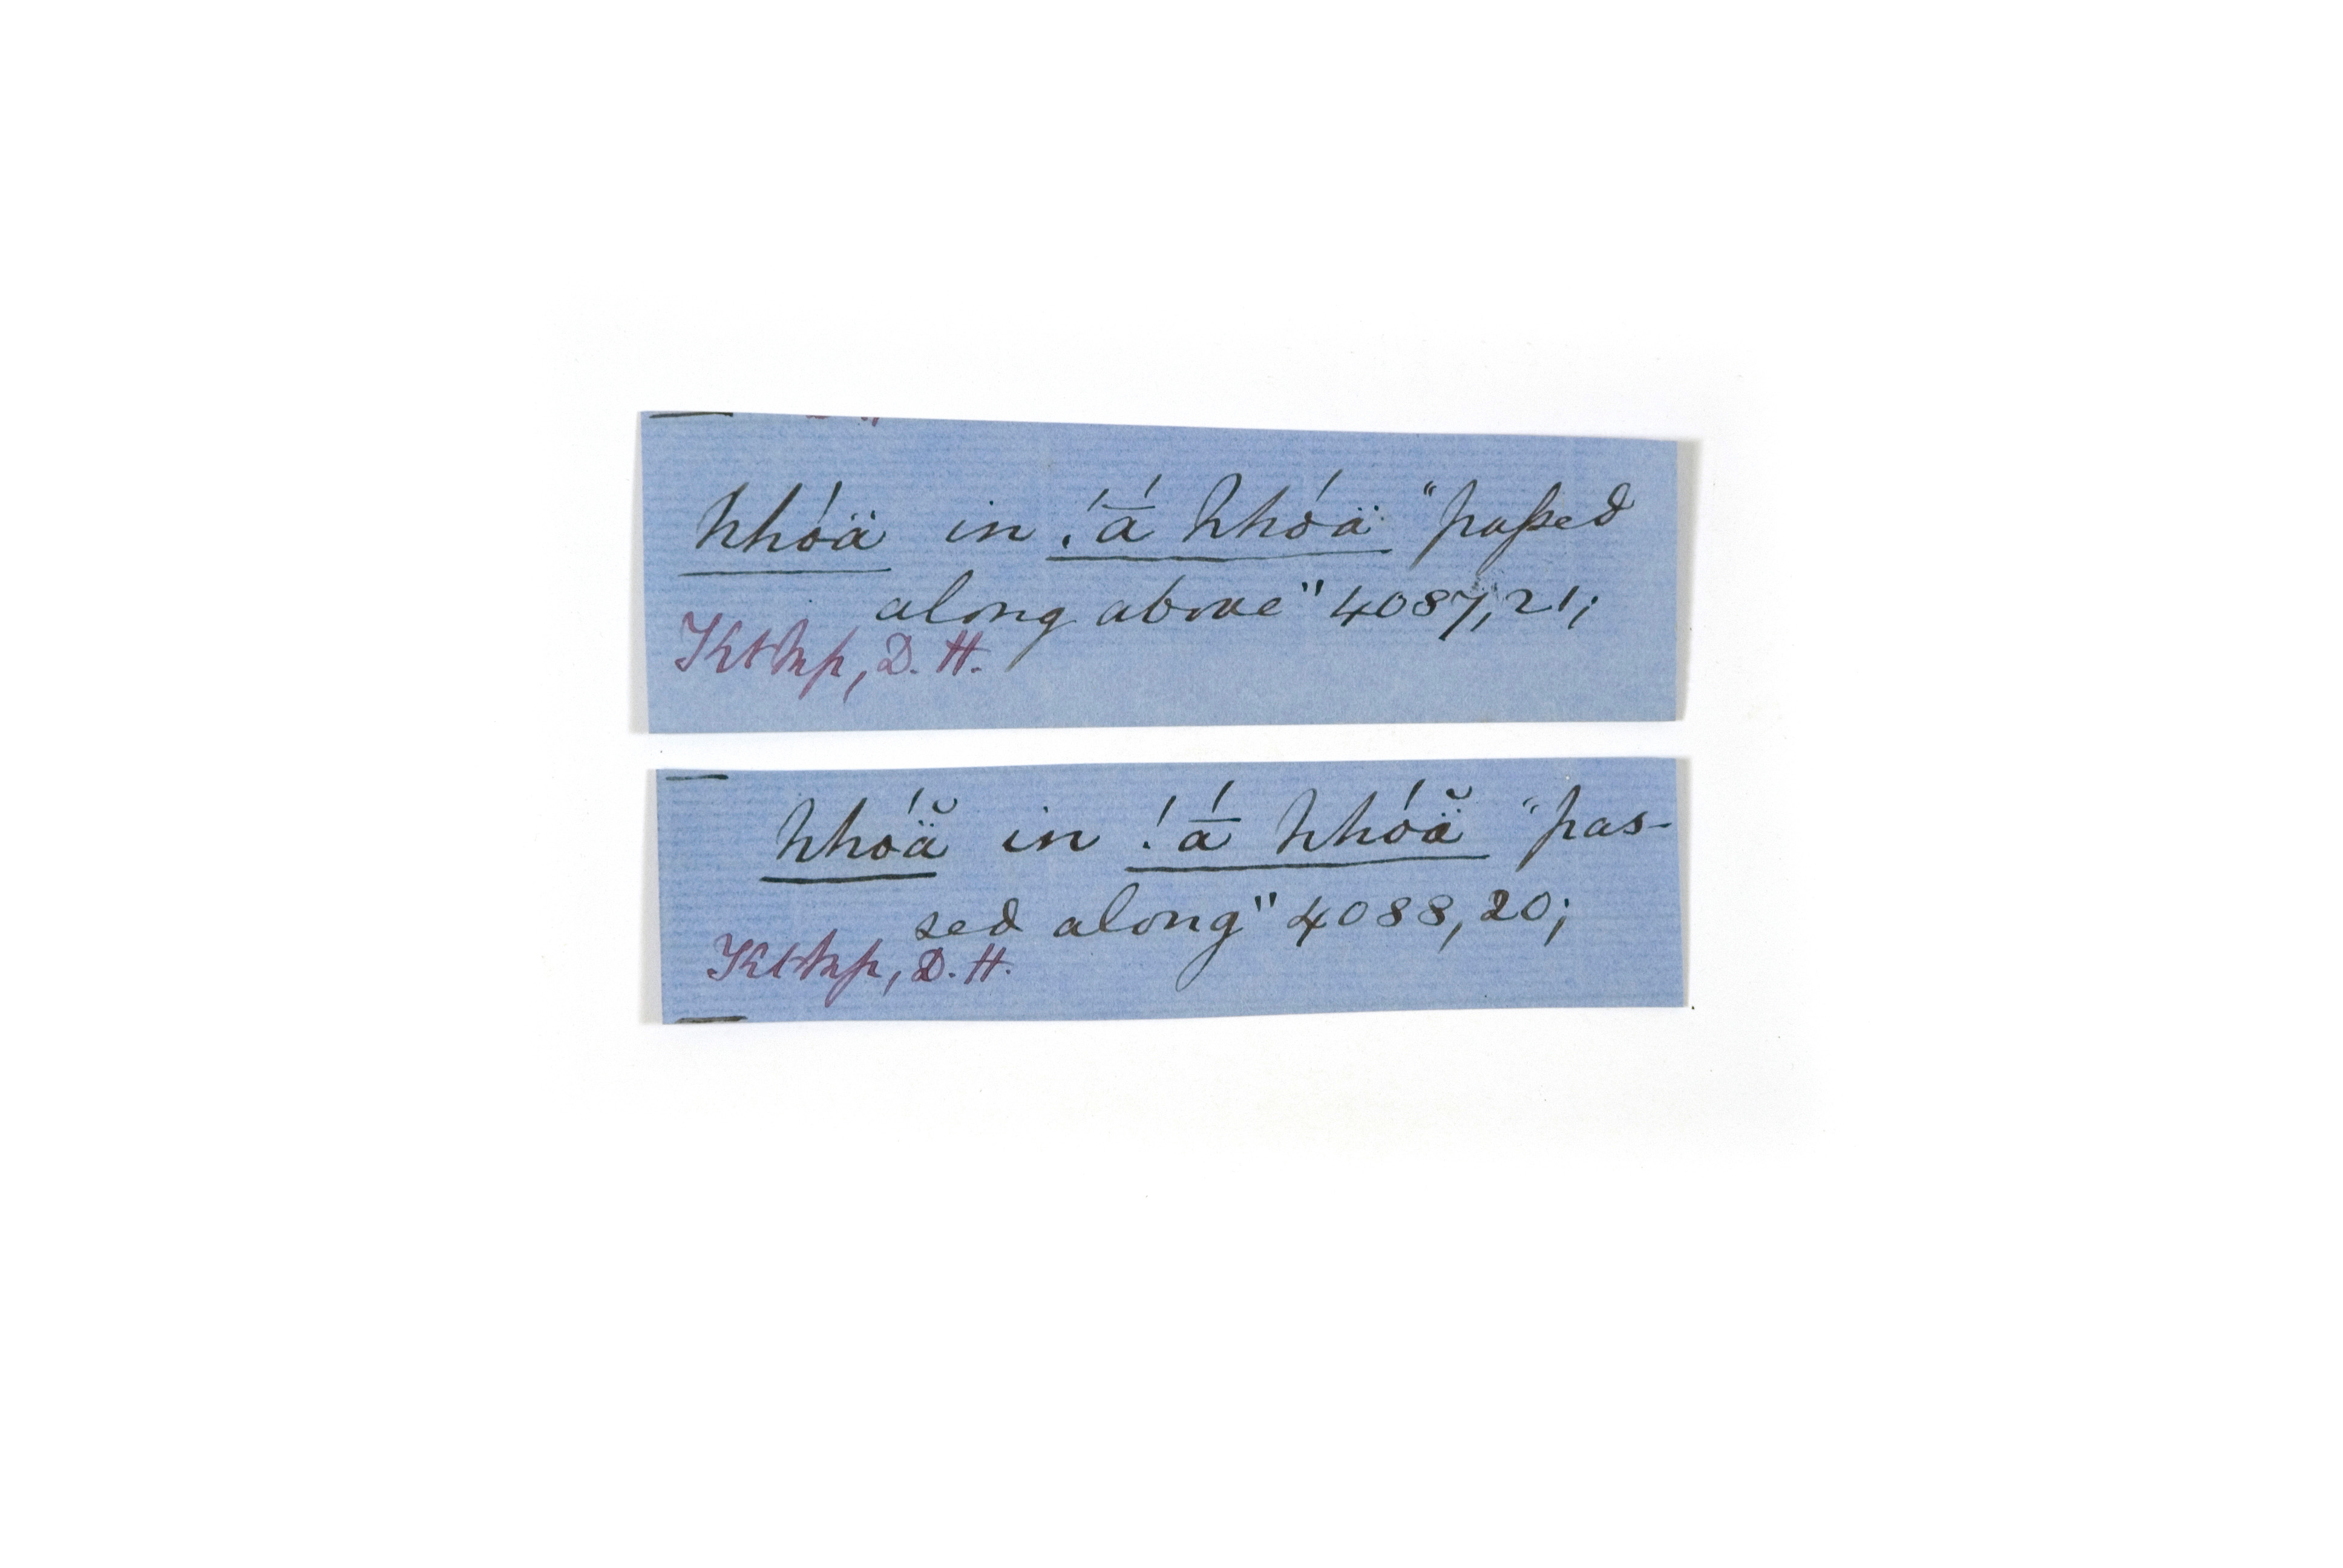 hhóä in !ā́ hhóä "paſsed
along above" 4087,21;
D. H.
hhóä̆ in !ā́ hhóä̆ "pas-
sed along" 4088,20;
D. H.